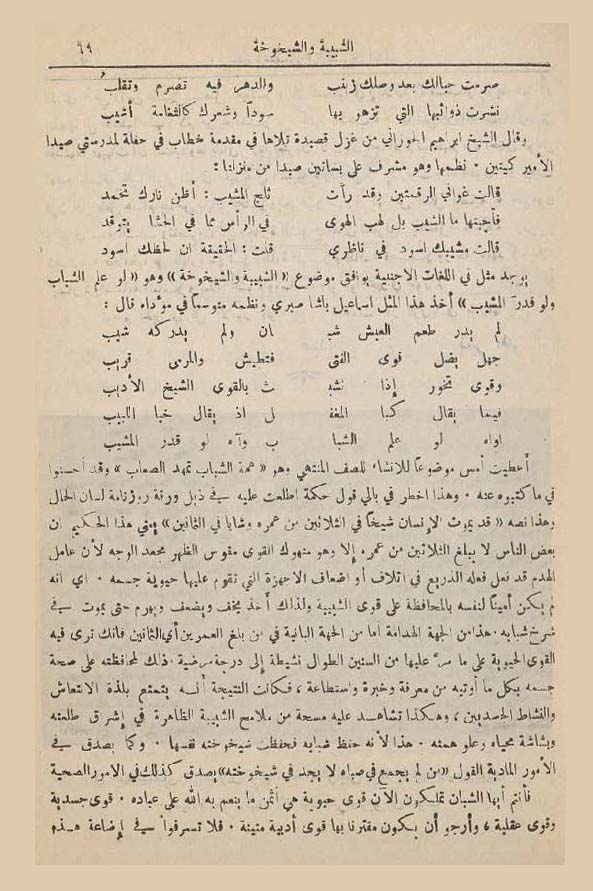 الشبيبة والشيخوخة ٦٩
صرمت حبالك بعد وصلك زينب والدهر فيه تصرم وتقلب
نشرت ذوائبها التي تزهو بها سوداً وشعرك كالثغامة أشيب
وقال الشيخ ابراهيم الحوراني من غزل قصيدة تلاها في مقدمة خطاب في حفلة لمدرستي صيدا
الأميركيتين ٠ نظمها وهو مشرف على بساتين صيدا من منزلنا :
قالت غواني الرقمتين وقد رأت ثلج المشيب : أظن نارك تخمد
فأجبتها ما الشيب بل لهب الهوى في الرأس مما في الحشا يتوقد
قالت مشيبك اسود في ناظري قلت : الحقيقة ان لحظك اسود
يوجد مثل في اللغات الاجنبية يوافق موضوع «الشبيبة والشيخوخة» وهو «لو علم الشباب
ولو قدر المشيب» أخذ هذا المثل اسماعيل باشا صبري ونظمه متوسعاً في مؤداه قال :
لم يدر طعم العيش شبـ ـان ولم يدركه شيب
جهل يضل قوى الفتى فتطيش والمرمى قريب
وقوى تخور إذا تشبـ ـث بالقوى الشيخ الأديب
فيما يقال كبا المغفـ ـل اذ يقال خبا اللبيب
اواه لو علم الشبا ب وآه لو قدر المشيب
أعطيت أمس موضوعاً للانشاء للصف المنتهي وهو «همة الشباب تمهد الصعاب» وقد أحسنوا
في ما كتبوه عنه ٠ وهذا اخطر في بالي قول حكمة اطلعت عليه في ذيل ورقة روزنامة لسان الحال
وهذا نصه «قد يموت الإنسان شيخاً في الثلاثين من عمره وشاباً في الثمانين» يعني هذا الحكيم ان
بعض الناس لا يبلغ الثلاثين من عمره إلا وهو منهوك القوى مقوس الظهر مجعد الوجه لأن عامل
الهدم قد فعل فعله الذريع في اتلاف أو اضعاف الاجهزة التي تقوم عليها حيوية جسمه ٠ اي انه
لم يكن أميناً لنفسه بالمحافظة على قوى الشبيبة ولذلك أخذ يخف ويضعف ويهرم حتى يموت في
شرخ شبابه ٠ هذا من الجهة الهدامة اما من الجهة البانية في من بلغ العمرين أي الثمانين فانك ترى فيه
القوى الحيوية على ما مر عليها من السنين الطوال نشيطة إلى درجة مرضية ذلك لمحافظته على صحة
جسمه بكل ما أوتيه من معرفة وخبرة واستطاعة ، فكانت النتيجة أنه يتمتع بلذة الانتعاش
والنشاط الجسديين ، وهكذا تشاهد عليه مسحة من ملامح الشبيبة الظاهرة في إشراق طلعته
وبشاشة محياه وعلو همته ٠ هذا لأنه حفظ شبابه فحفظت شيخوخته نفسها ٠ وكما يصدق في
الأمور المادية القول «من لم يجمع في صباه لا يجد في شيخوخته» يصدق كذلك في الامور الصحية
فأنتم أيها الشبان تملكون الآن قوى حيوية هي أثمن ما ينعم به الله على عباده ٠ قوى جسدية
وقوى عقلية ، وأرجو أن يكون مقترنا بها قوى أدبية متينة ٠ فلا تسرفوا في إضاعة هذه